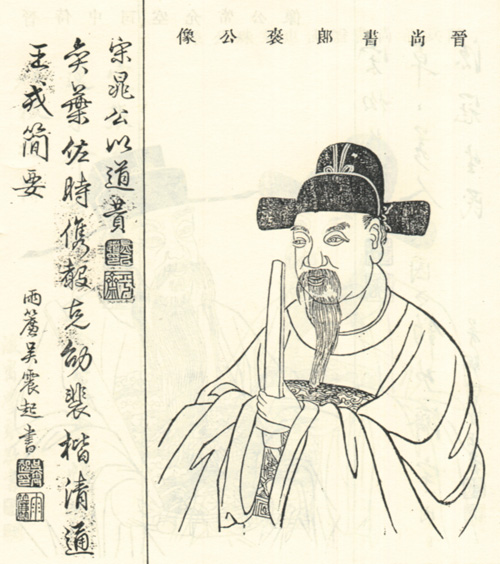 晉尚書郎裒公像
宋晁公以道貴
奕葉佐時儁毅克劭裴楷清通
王戎簡要
雨吳震起書